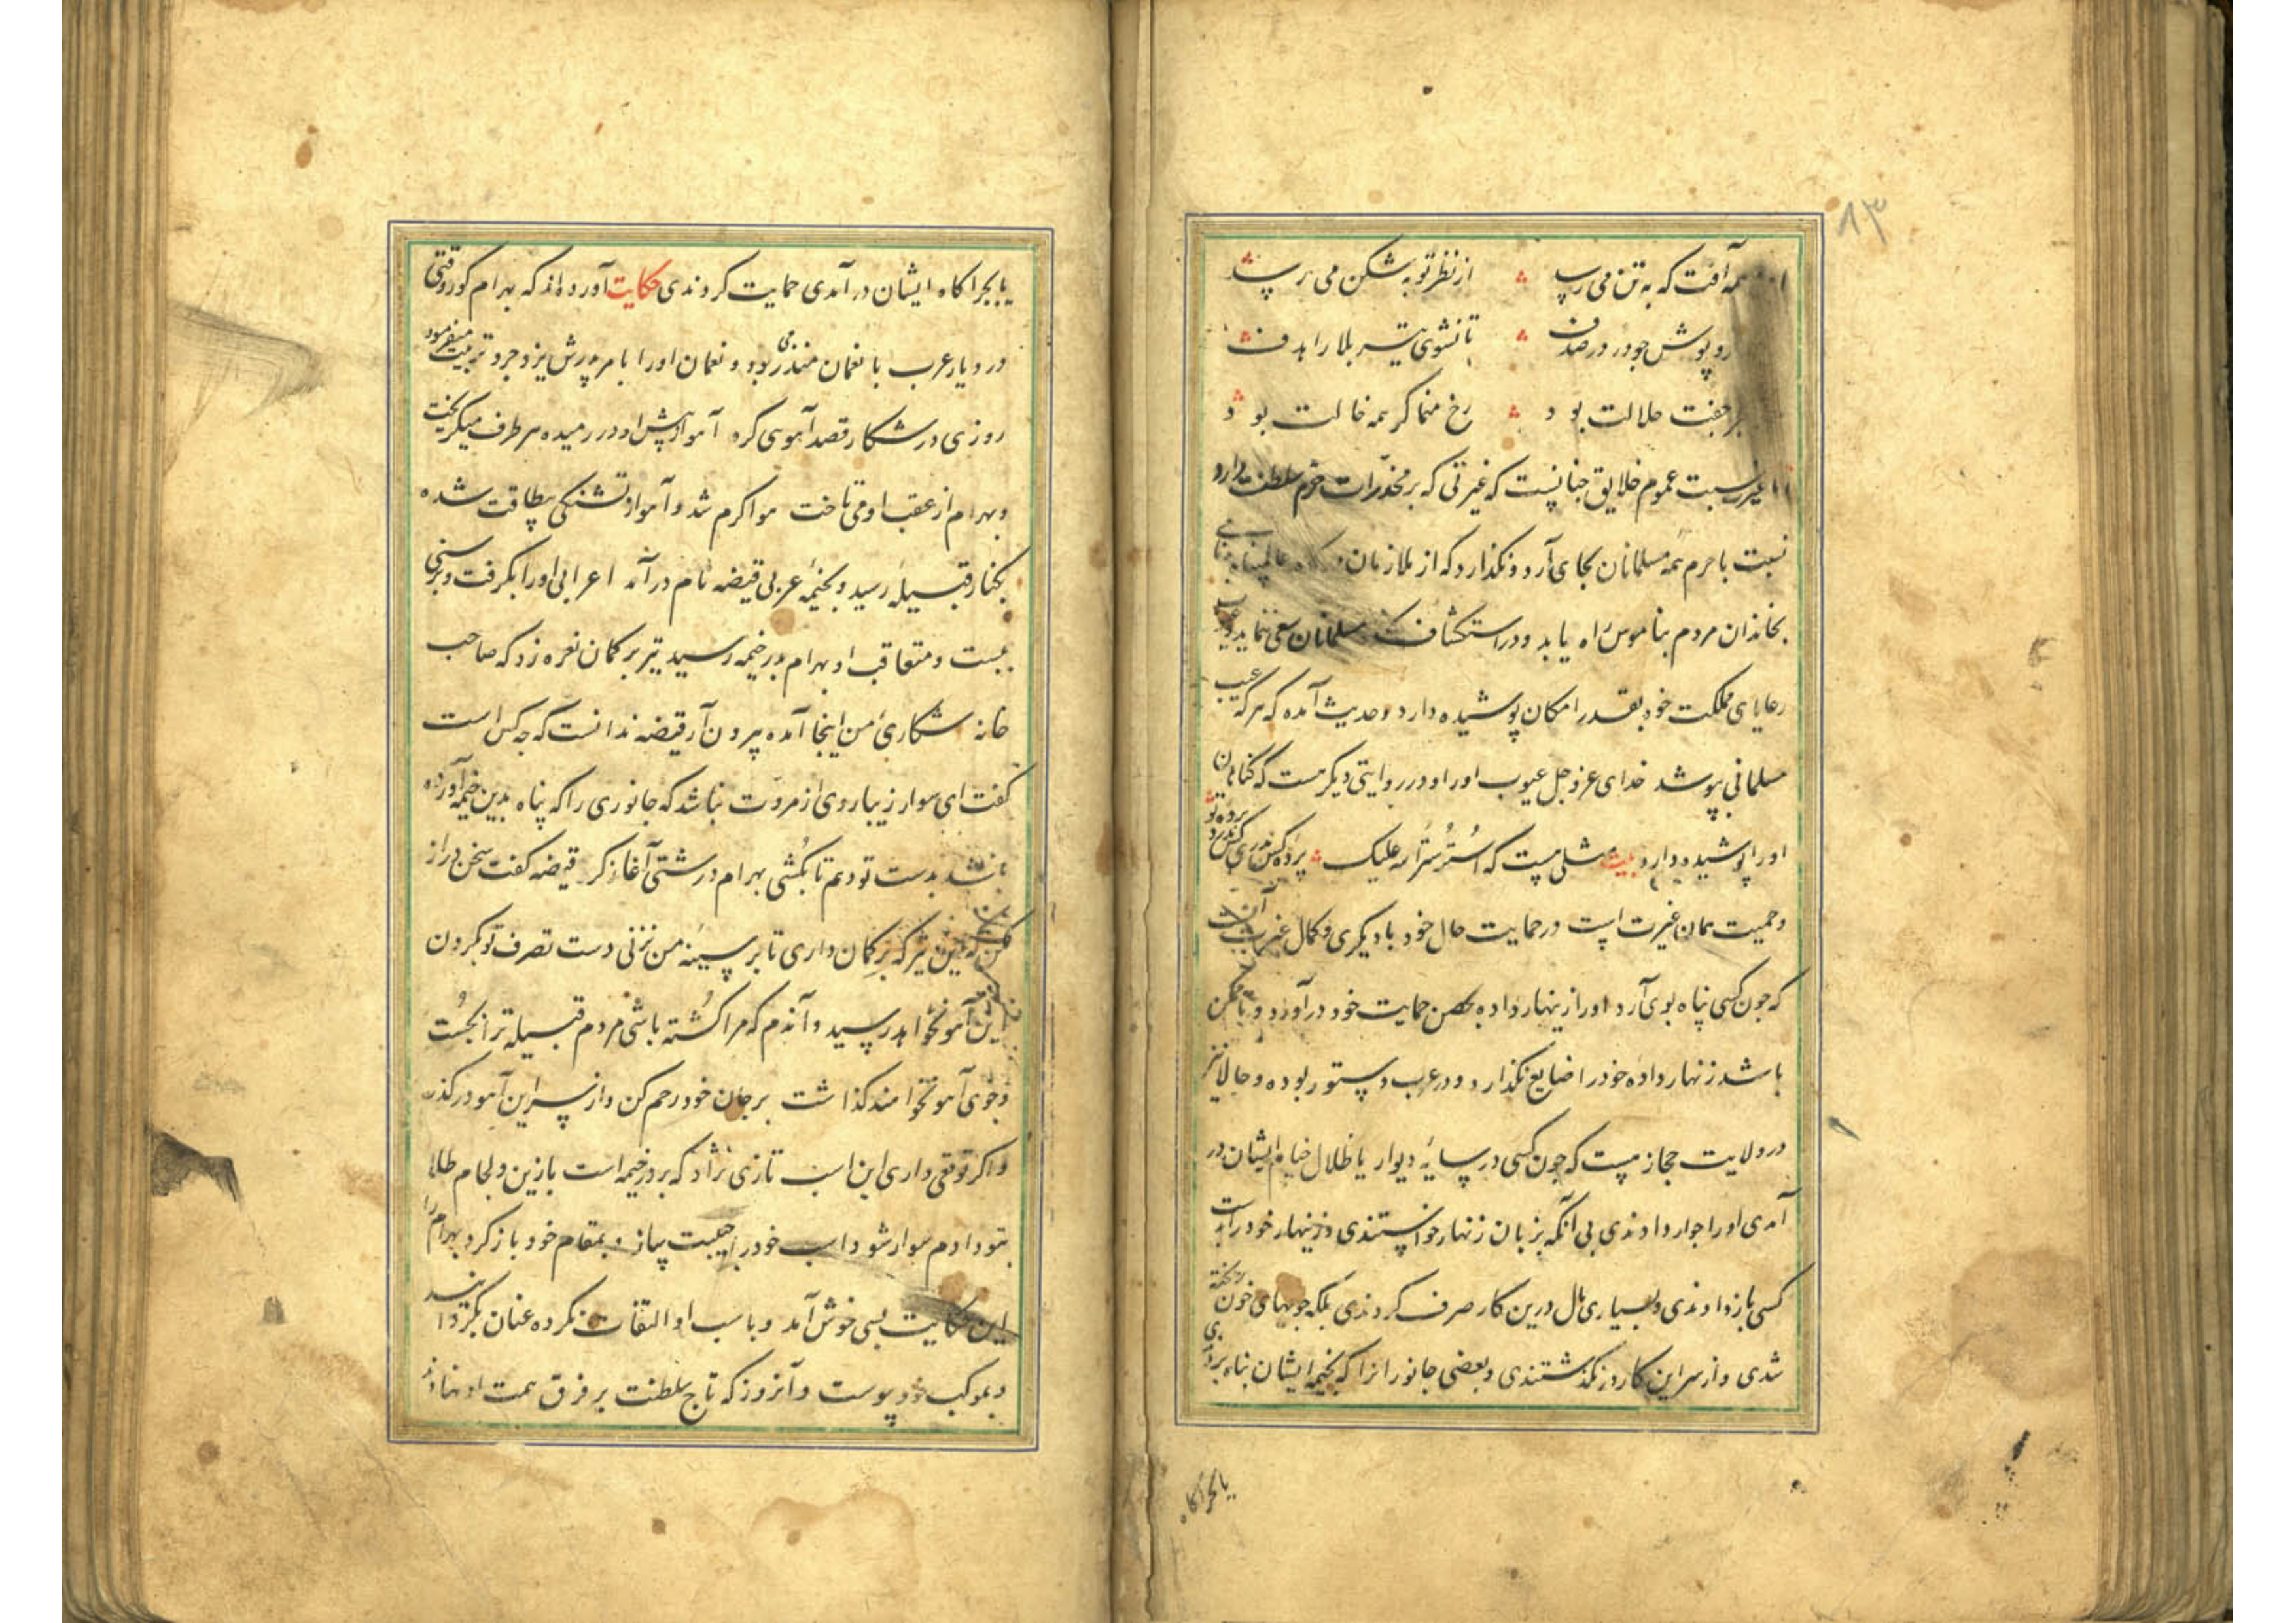 ۸۳
همه آفت که به تن می رسد از نظر توبه شکن می رسد
رو پوش چو در در صدف تا نشوی تیر بلا را هدف
جفت حلالت بود رخ منما گر همه خالت بود
اما غیرت نسبت عموم خلایق چنانست که غیرتی که بر مخدرات حرم سلطنت دارد
نسبت با حرم همه مسلمانان بجای آرد و نگذارد که از ملازمان عالمپناه
بخاندان مردم بناموس راه یابد و در استکشاف مسلمانان سعی ننماید و عیوب
رعایای مملکت خود بقدر امکان پوشیده دارد و حدیث آمده که هر که عیب
مسلمانی بپوشد خدای عز و جل عیوب او را و در روایتی دیگر هست که گناهان
او را پوشیده دارد بیت مثلی هست که استر ستر الله علیک پرده کس مدری کس ندرد پرده تو
و حمیت همان غیرت است در حمایت حال خود با دیگری و کمال غیرت آنست
که چون کسی پناه بوی آرد او را زینهار داده بحصن حمایت خود درآورد و تا ممکن
باشد زنهار داده خود را ضایع نگذارد و در عرب دستور بوده و حالا نیز
در ولایت حجاز هست که چون کسی در سایه دیوار یا ظلال خیام ایشان در
آمدی او را جوار دادندی بی آنکه بزبان زنهار خواستندی و زینهار خود را بدست
کسی باز دادندی و بسیاری مال درین کار صرف کردندی بلکه جویهای خون ریخته
شدی و از سر این کار در نگذشتندی و بعضی جانورانرا که بخیمه ایشان پناه بردی
یا بچراگاه
یا بچراگاه ایشان در آمدی حمایت کردندی حکایت آورده اند که بهرام گور وقتی
در دیار عرب با نعمان منذر می بود و نعمان او را بامر پدرش یزدجرد تربیت میفرمود
روزی در شکار قصد آهوی کرد آهو از پیش او در رمیده هر طرف میگریخت
و بهرام از عقب او می تاخت هوا گرم شد و آهو از تشنگی بیطاقت شده
بکنار قبیله رسید و بخیمه عربی قیضه نام درآمد اعرابی او را بگرفت و برسنی
ببست و متعاقب او بهرام بدر خیمه رسید تیر بر کمان نعره زد که صاحب
خانه شکاری من اینجا آمده بیرون آر قیضه ندانست که چه کس است
گفت ای سوار زیباروی از مروت نباشد که جانوری را که پناه بدین خیمه آورده
باشد بدست تو دهم تا بکشی بهرام درشتی آغاز کرد قیضه گفت سخن دراز
مکن که بدین تیر که بر کمان داری تا بر سینه من نزنی دست تصرف تو بگردن
این آهو نخواهد رسید و آندم که مرا کشته باشی مردم قبیله ترا بجست
و جوی آهو نخواهند گذاشت بر جان خود رحم کن و از سر این آهو درگذر
و اگر توقعی داری این اسب تازی نژاد که بر در خیمه است با زین و لجام طلا
بتو دادم سوار شو و اسب خود را جنیبت ساز و بمقام خود باز گرد بهرام را
این حکایت بسی خوش آمد و باسب او التفات نکرده عنان بگردانید
و بموکب خود پیوست و آنروز که تاج سلطنت بر فرق همت او نهادند